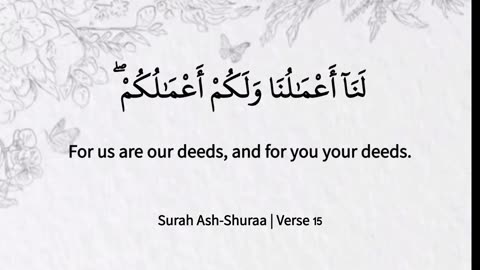 لَنَآ أَعْمَـٰلُنَا وَلَكُمْ أَعْمَـٰلُكُمْ ۖ
For us are our deeds, and for you your deeds.
Surah Ash-Shuraa | Verse 15